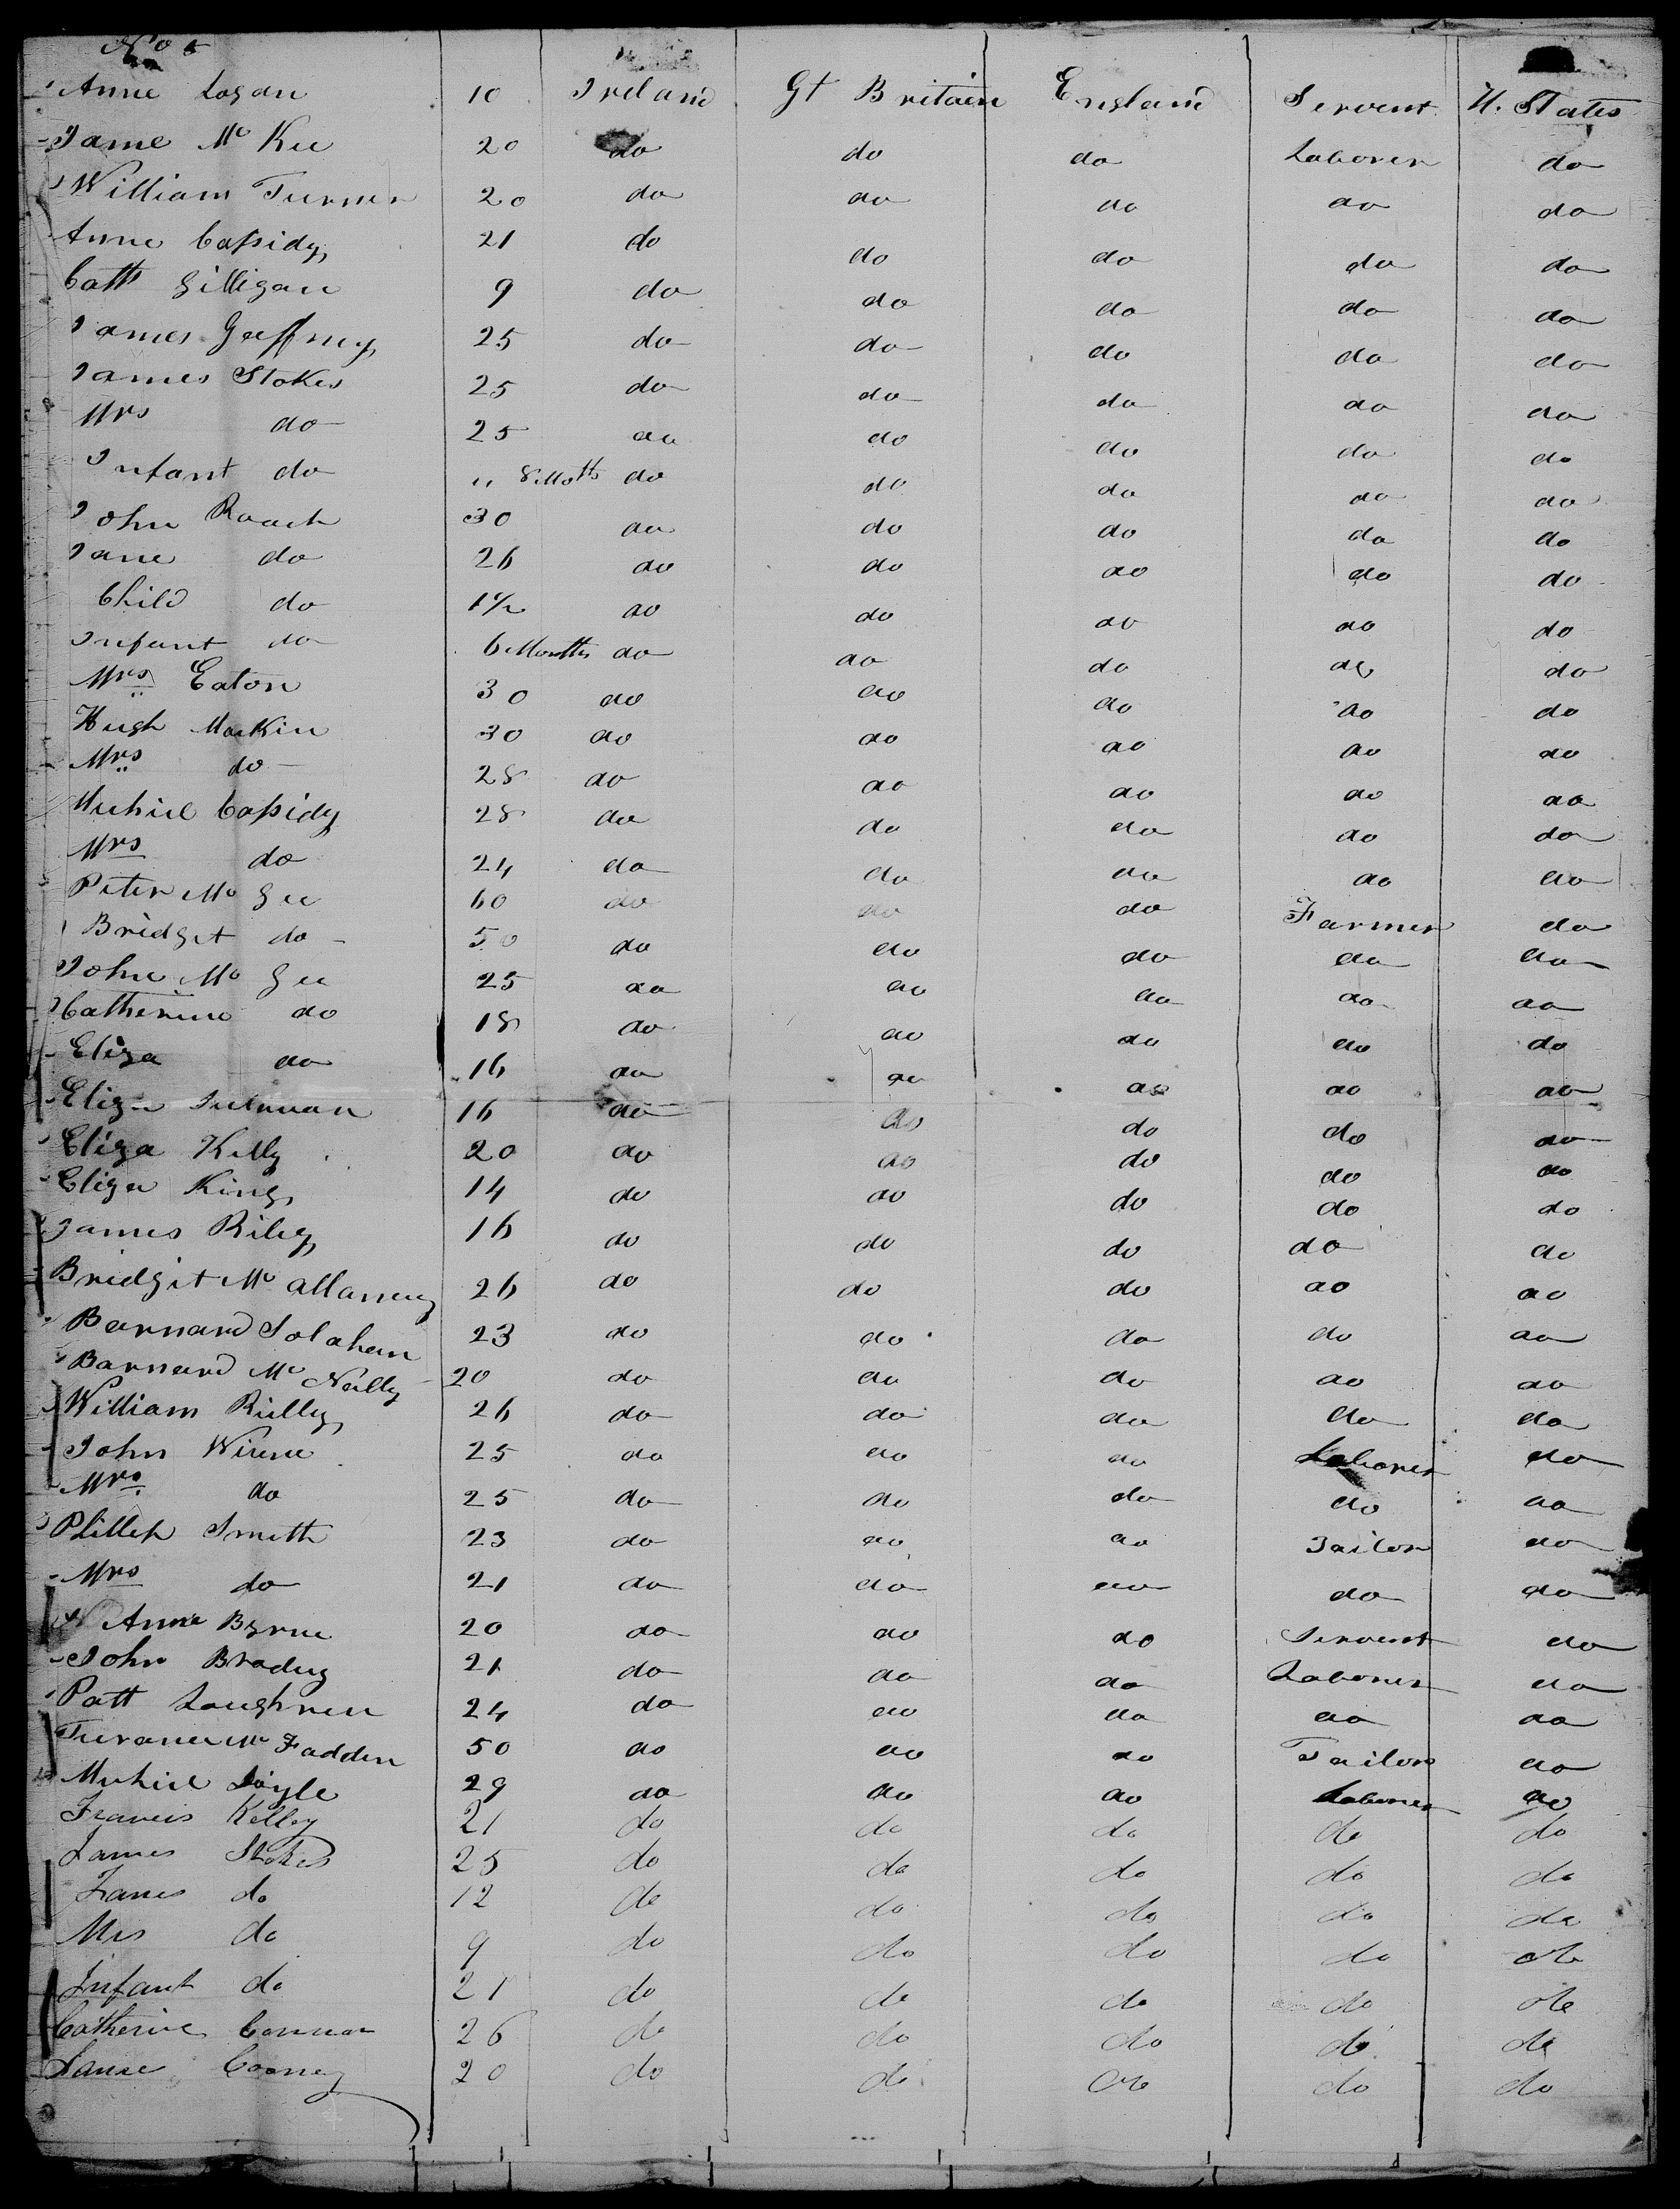 No 5
Anne Logan 10 Ireland Gt Britain England Servent U. States
Jame Mc Kee 20 do do do Laborer do
William Turner 20 do do do do do
Anne Cassidy 21 do do do do do
Cath Gilligan 9 do do do do do
James Gaffney 25 do do do do do
James Stokes 25 do do do do do
Mrs do 25 do do do do do
Infant do " 8 Moths do do do do do
John Roach 30 do do do do do
Jane do 26 do do do do do
Child do 1½ do do do do do
Infant do 6 Months do do do do do
Mrs Eaton 30 do do do do do
Hugh Mackin 30 do do do do do
Mrs do 28 do do do do do
Michiel Cassidy 28 do do do do do
Mrs do 24 do do do do do
Peter Mc Gee 60 do do do Farmer do
Bridget do 50 do do do do do
John Mc Gee 25 do do do do do
Catherine do 18 do do do do do
Eliza do 16 do do do do do
Eliza 16 do do do do do
Eliza Kelly 20 do do do do do
Eliza King 14 do do do do do
James Riley 16 do do do do do
Bridgit Mc allarney 26 do do do do do
Barnard Solahan 23 do do do do do
Barnard Mc Nally 20 do do do do do
William Rielly 26 do do do do do
John 25 do do do Laborer do
Mrs do 25 do do do do do
Phillip Smith 23 do do do Tailor do
Mrs do 21 do do do do do
Anne Byrne 20 do do do Servent do
John Brady 21 do do do Laborer do
Patt Loughren 24 do do do do do
Mc Fadden 50 do do do Tailor do
Michiel Doyle 29 do do do Laborer do
Francis Kelley 21 do do do do do
James Stokes 25 do do do do do
James do 12 do do do do do
Mrs do 9 do do do do do
Infant do 21 do do do do do
Catherine Connor 26 do do do do do
Cooney 20 do do do do do